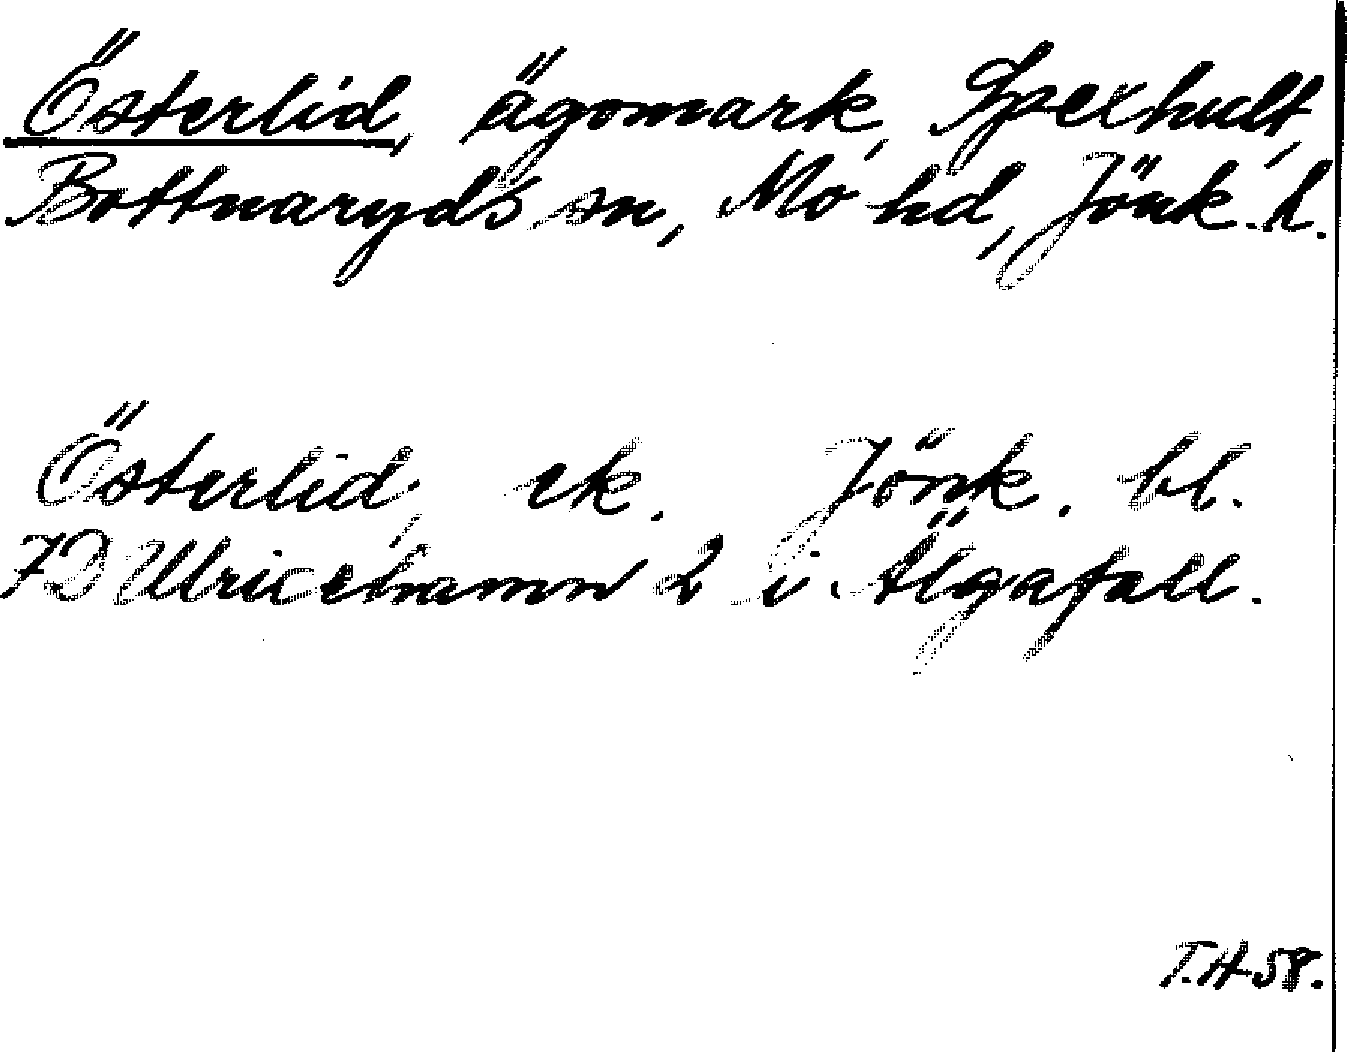 Österlid, ägomark, Spexhult,
Bottnaryds sn, Mo hd, Jönk. l.
Österlid, ek. Jönk. bl.
7D Ulricehamn 2 i. Älgafall.
T.H 58.